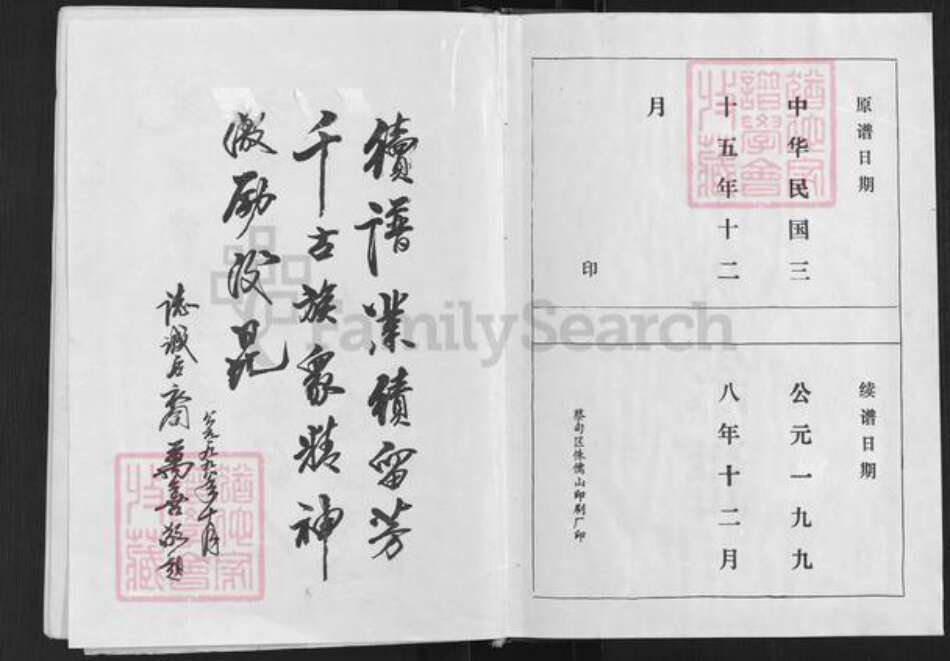 原谱日期
中华民国三
十五年十二
月
印
续谱日期
公元一九九
八年十二月
蔡甸区侏儒山印刷厂印
續譜業績留芳
千古族众精神
激励後昆
誌诚后裔萬喜敬題
公元一九九八年十月
FamilySearch